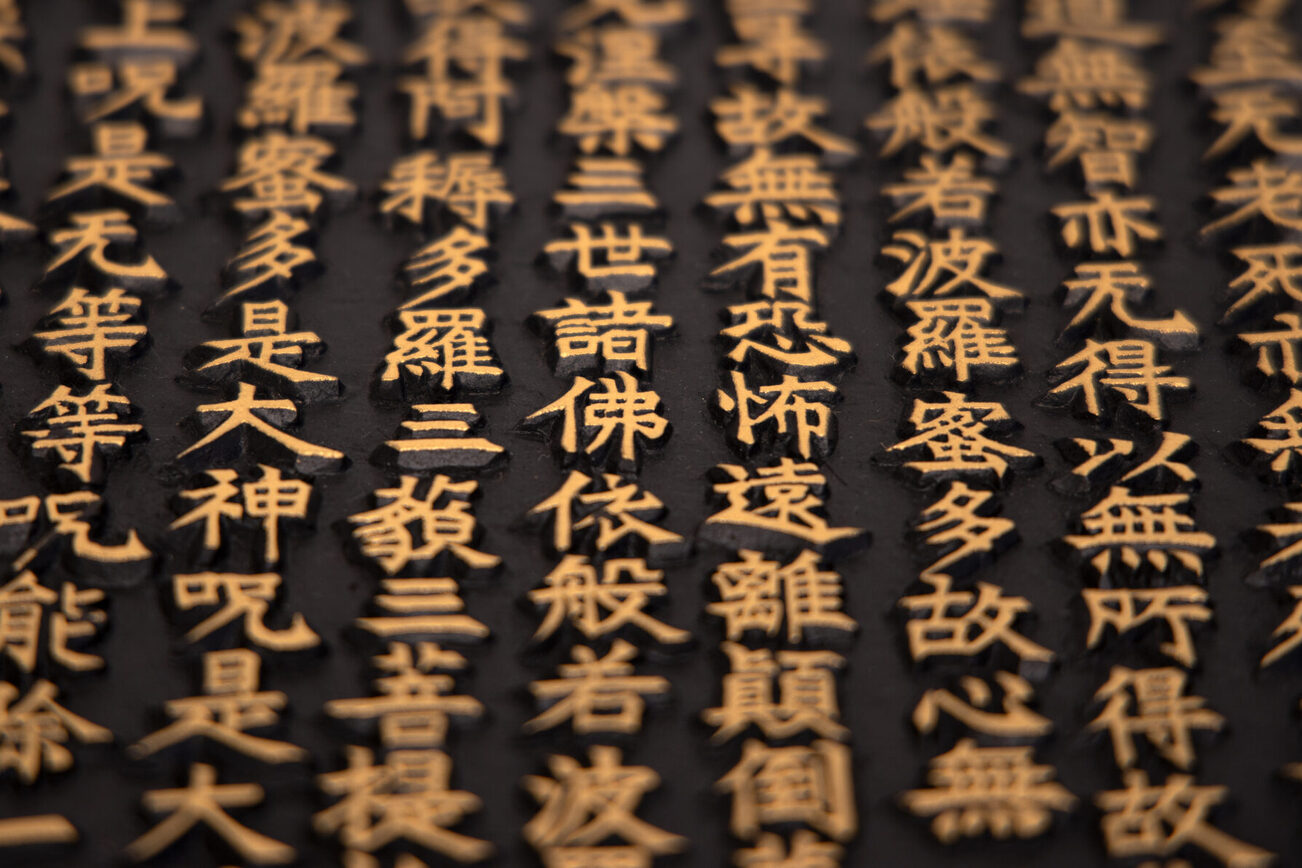 至无老死亦無
道無智亦无得以無所得故
依般若波羅蜜多故心無
故無有恐怖遠離顛倒
涅槃三世諸佛依般若波
得阿耨多羅三藐三菩提
波羅蜜多是大神呪是大
上呪是无等等呪能除一